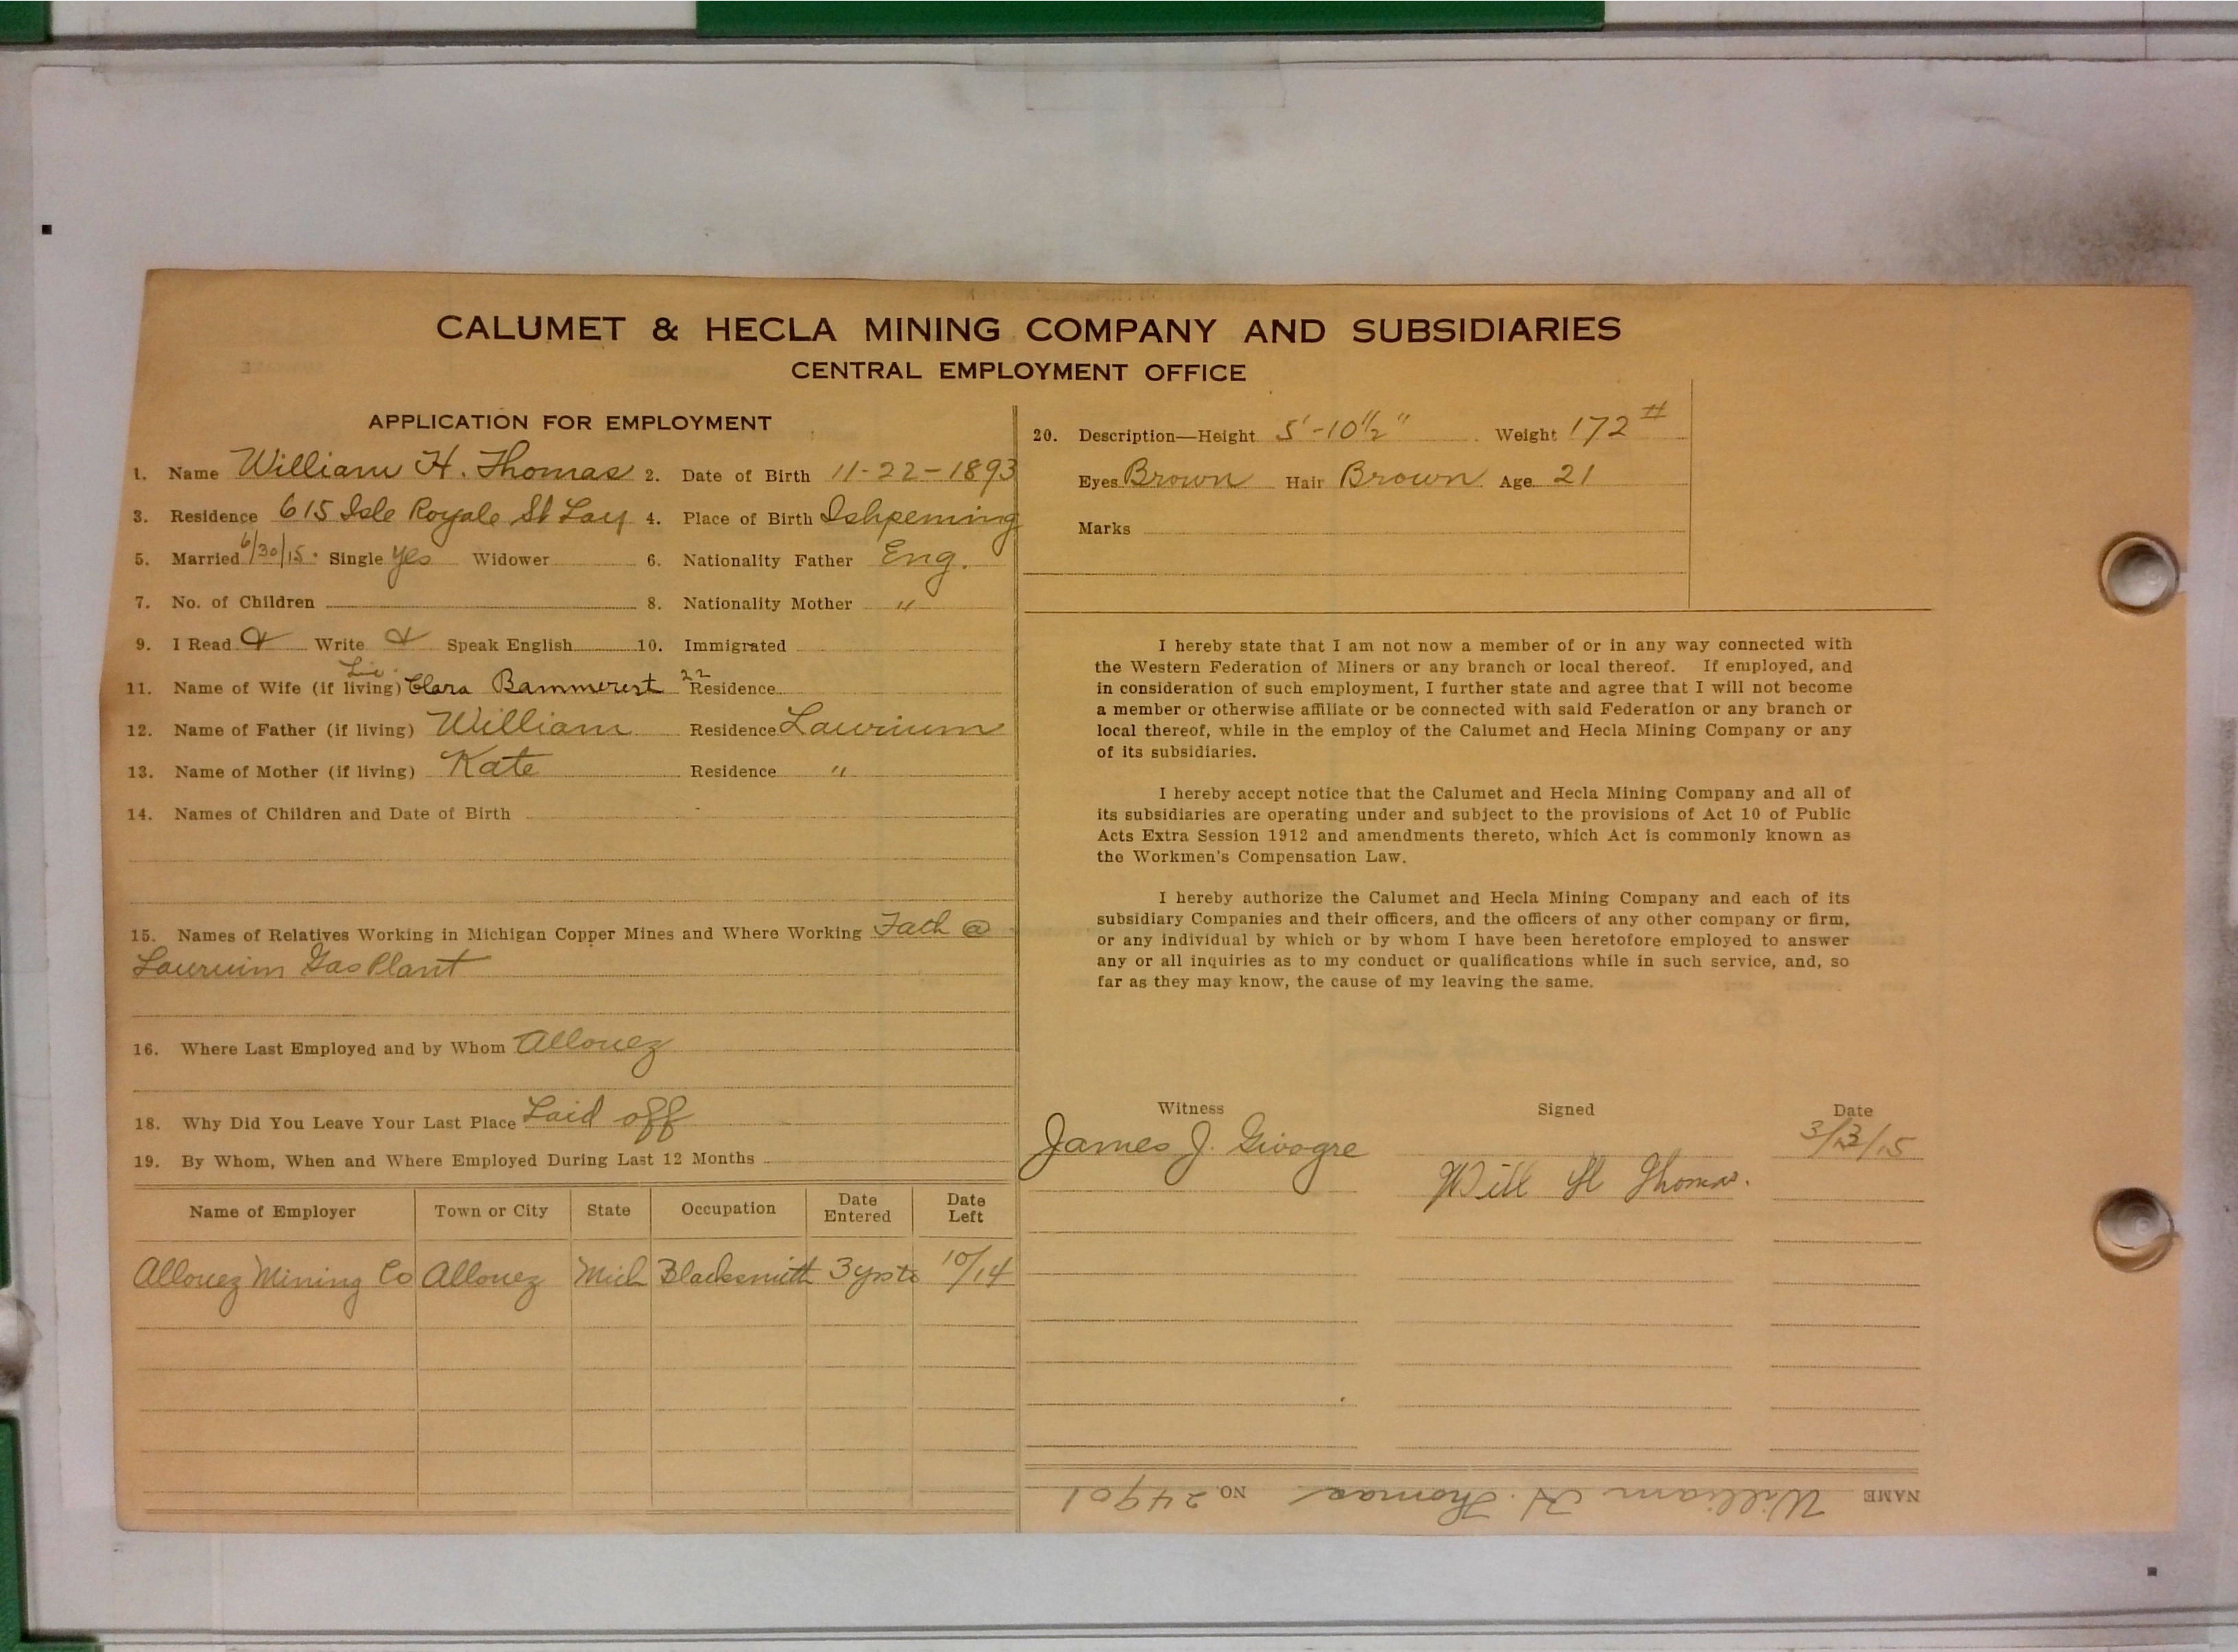 CALUMET & HECLA MINING COMPANY AND SUBSIDIARIES
CENTRAL EMPLOYMENT OFFICE
APPLICATION FOR EMPLOYMENT
1. Name William H. Thomas 2. Date of Birth 11-22-1893
3. Residence 615 Isle Royale St Lau 4. Place of Birth Ishpeming
5. Married 6/30/15. Single yes Widower 6. Nationality Father Eng.
7. No. of Children 8. Nationality Mother "
9. I Read & Write & Speak English 10. Immigrated
11. Name of Wife (if living) Clara 22 Residence
12. Name of Father (if living) William Residence Laurium
13. Name of Mother (if living) Kate Residence "
14. Names of Children and Date of Birth
15. Names of Relatives Working in Michigan Copper Mines and Where Working Fath @
Laurium Gas Plant
16. Where Last Employed and by Whom Allouez
18. Why Did You Leave Your Last Place Laid off
19. By Whom, When and Where Employed During Last 12 Months
Name of Employer Town or City State Occupation Date Entered Date Left
Allouez Mining Co Allouez Mich Blacksmith 3 yrs to 10/14
20. Description—Height 5'-10 1/2" Weight 172 #
Eyes Brown Hair Brown Age 21
Marks
I hereby state that I am not now a member of or in any way connected with
the Western Federation of Miners or any branch or local thereof. If employed, and
in consideration of such employment, I further state and agree that I will not become
a member or otherwise affiliate or be connected with said Federation or any branch or
local thereof, while in the employ of the Calumet and Hecla Mining Company or any
of its subsidiaries.
I hereby accept notice that the Calumet and Hecla Mining Company and all of
its subsidiaries are operating under and subject to the provisions of Act 10 of Public
Acts Extra Session 1912 and amendments thereto, which Act is commonly known as
the Workmen's Compensation Law.
I hereby authorize the Calumet and Hecla Mining Company and each of its
subsidiary Companies and their officers, and the officers of any other company or firm,
or any individual by which or by whom I have been heretofore employed to answer
any or all inquiries as to my conduct or qualifications while in such service, and, so
far as they may know, the cause of my leaving the same.
Witness Signed Date
James J. 3/13/15
Will H Thomas.
NAME William H. Thomas NO. 24901